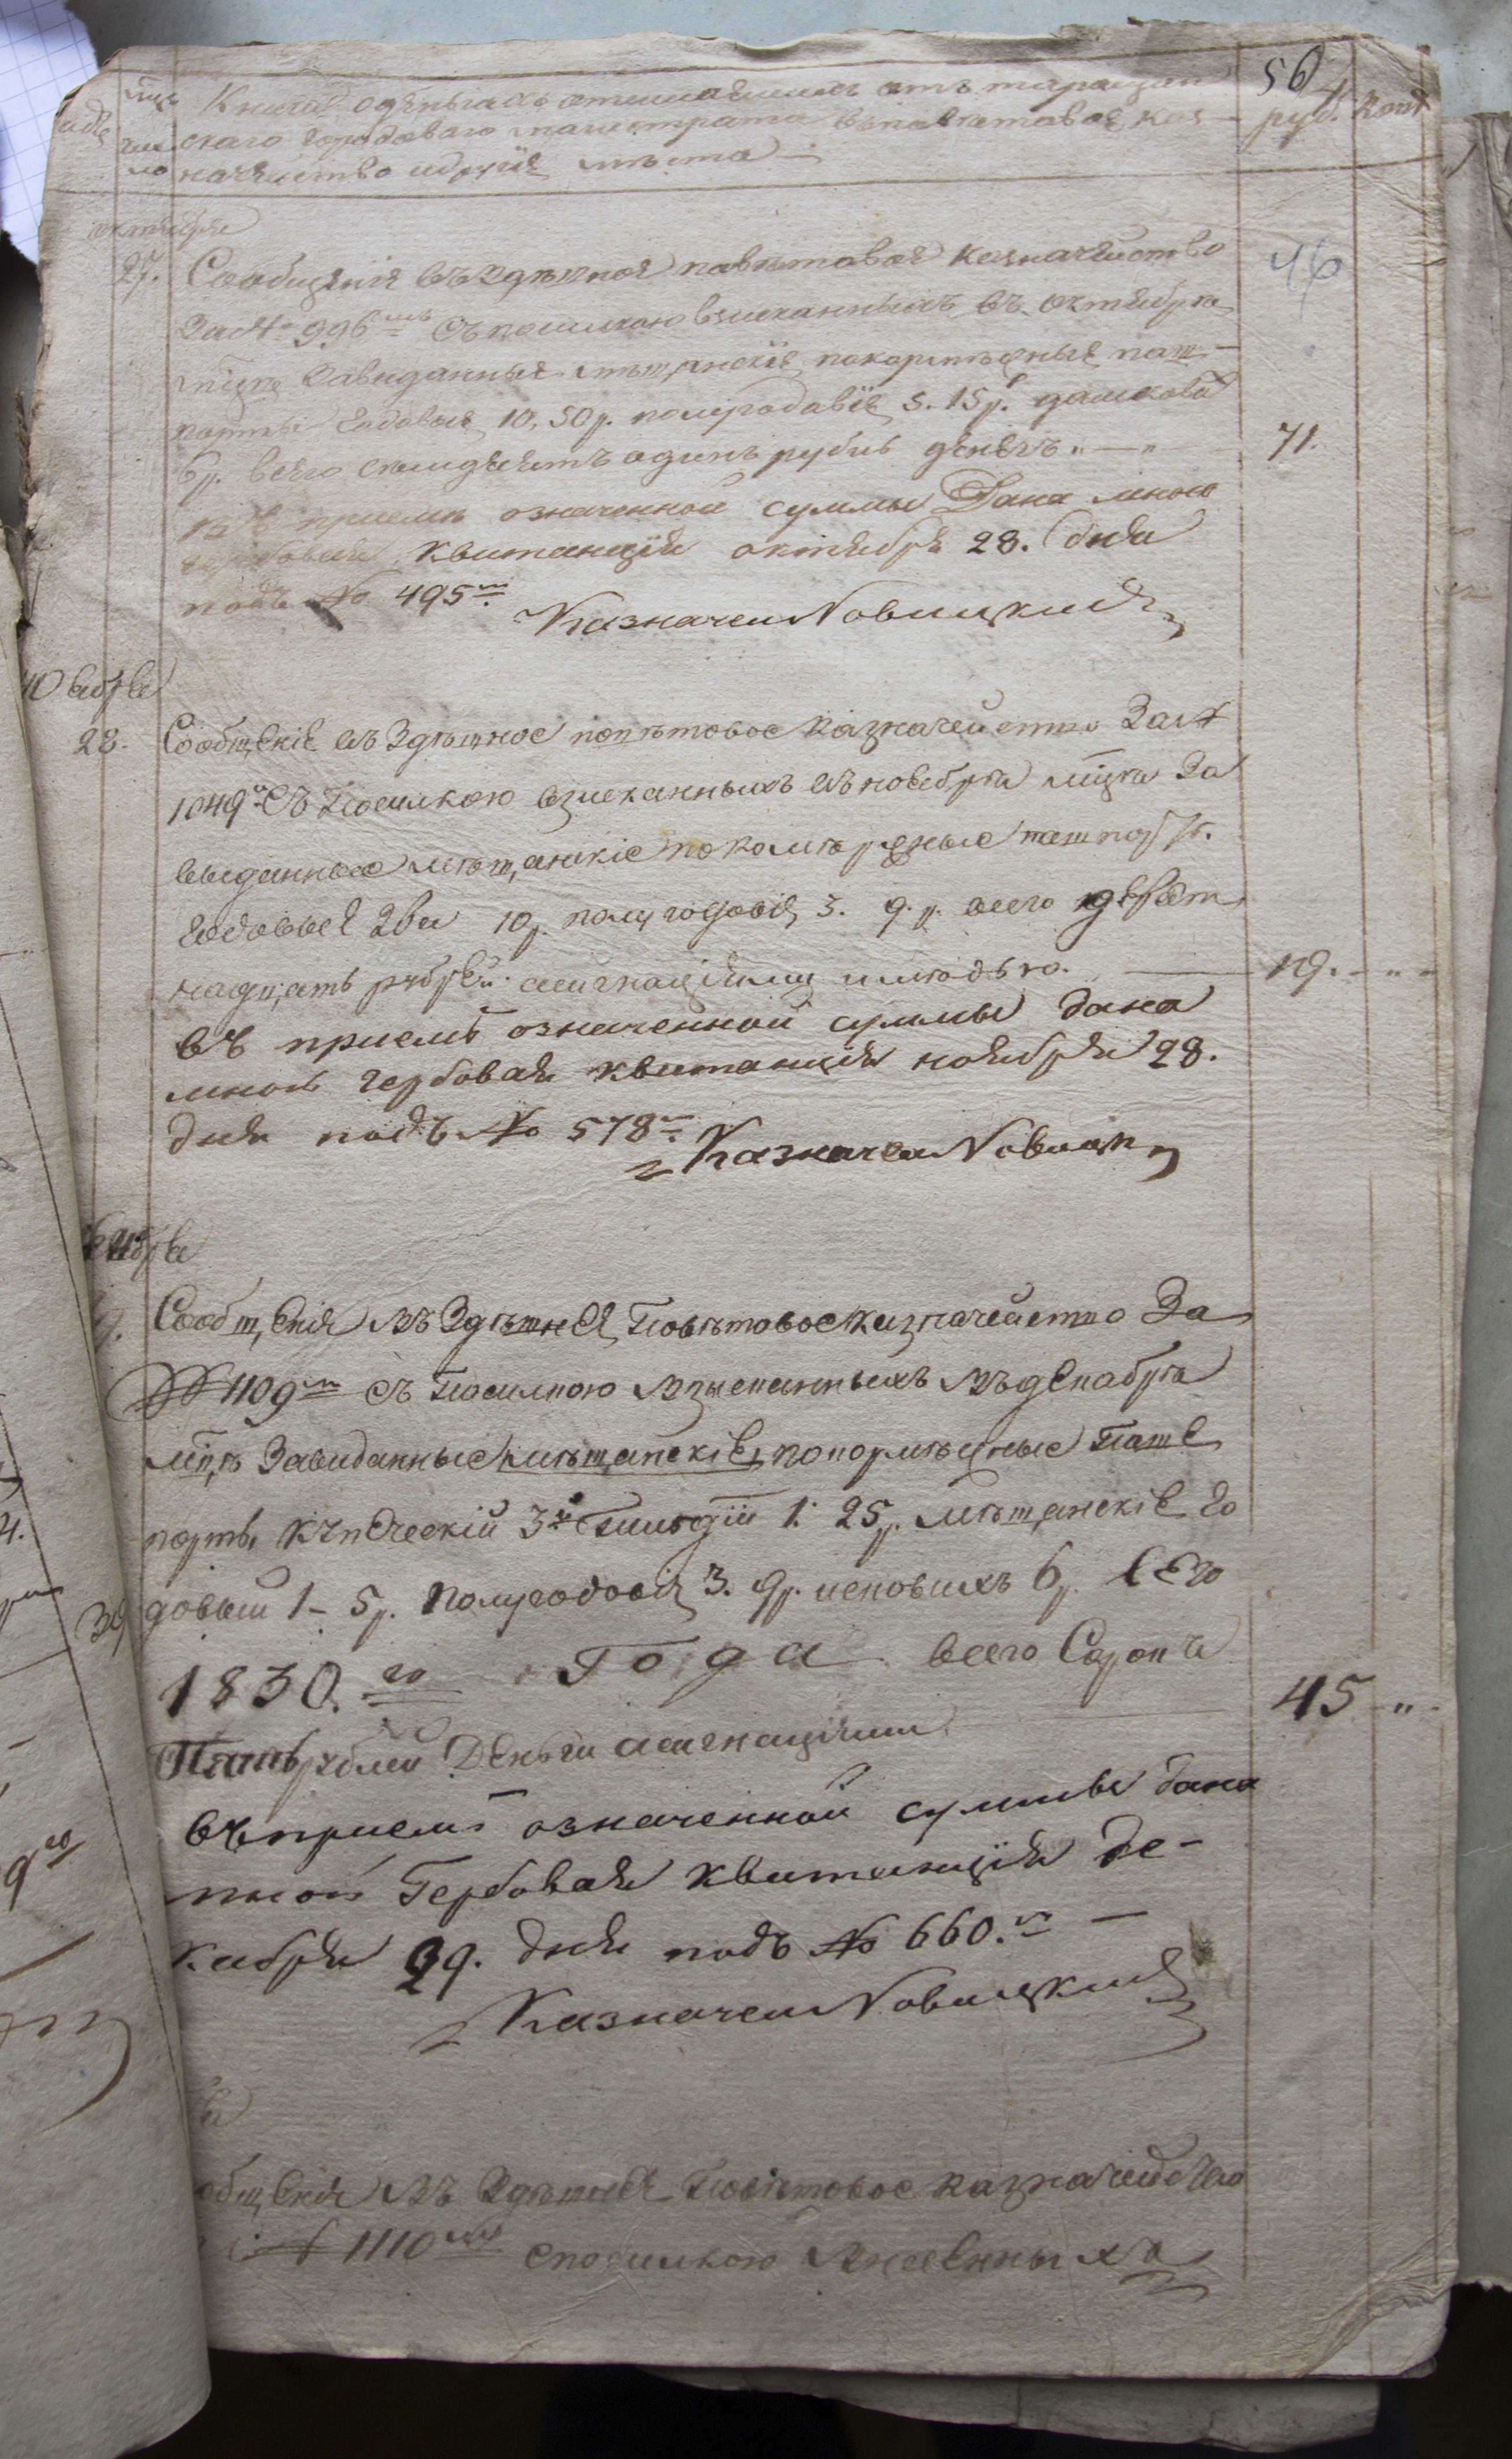 56
мцъ Книга о деньгахъ отшпаемихъ отъ таращан
руб. копѣ
чис скаго городоваго магистрата въ поветовое каз
ло начейство и другия места
октября
27. Сообщения въ здешное паветавое казначейство
46
за № 996мъ съ посилкою взисканныхъ въ октябре
мце завиданные мещанские покормежные паш
порты годовые 10, 50 р. полугодавие 5. 15 р.
6 р. всего семдесятъ одинъ рубль денегъ
71.
въ приеме означенной суммы Дана мною
гербовая квитанция октября 28. дня
подъ № 495м.
Казначей Новицкий
Ноября
28. Сообщение въ здешное поветовое казначейство За №
1049 съ Посилкою взисканныхъ въ новебре мце За
выданные мещанские покормежные пашпорт.
годовые два 10 р. полугодовие 3. 9. р. всего девят
надцать рублей асигнациями и медью.
19.
въ приеме означенной суммы дана
мною гербовая квитанция ноября 28.
дня подъ № 578.
Казначей Новицкий
Сообщения въ Здешнея Поветовое казначейство За
№ 1109м съ Посилкою взысканныхъ въ декабре
мце Завиданные мещанские, покормежные паше
порты купеческий 3й Гильдии 1. 25 р. мещанские го
довый 1 - 5 р. полугодовие 3. 9 р. исковихъ 6 р. всего
1830.го Года всего Сорокъ
45
Пять рублей Денги асигнациями
въ приеме означенной суммы дана
мною Гербовая квитанция де-
кабря 29. дня подъ № 660.
Казначей Новицкий
общения въ Здешнея Поветовое казначейство
№ 1110 с посилкою внесенныхъ